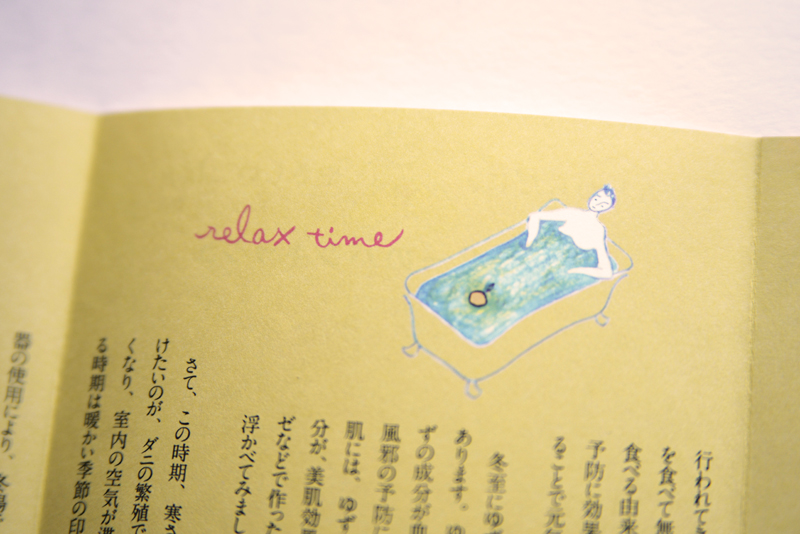 relax time
行われてき
を食べて無
食べる由来
予防に効果
ることで元気
冬至にゆ
あります。ゆ
ずの成分が血
風邪の予防に
肌には、ゆず
分が、美肌効果
ゼなどで作った
浮かべてみまし
さて、この時期、寒さ
けたいのが、ダニの繁殖で
くなり、室内の空気が
る時期は暖かい季節の印
器の使用により、